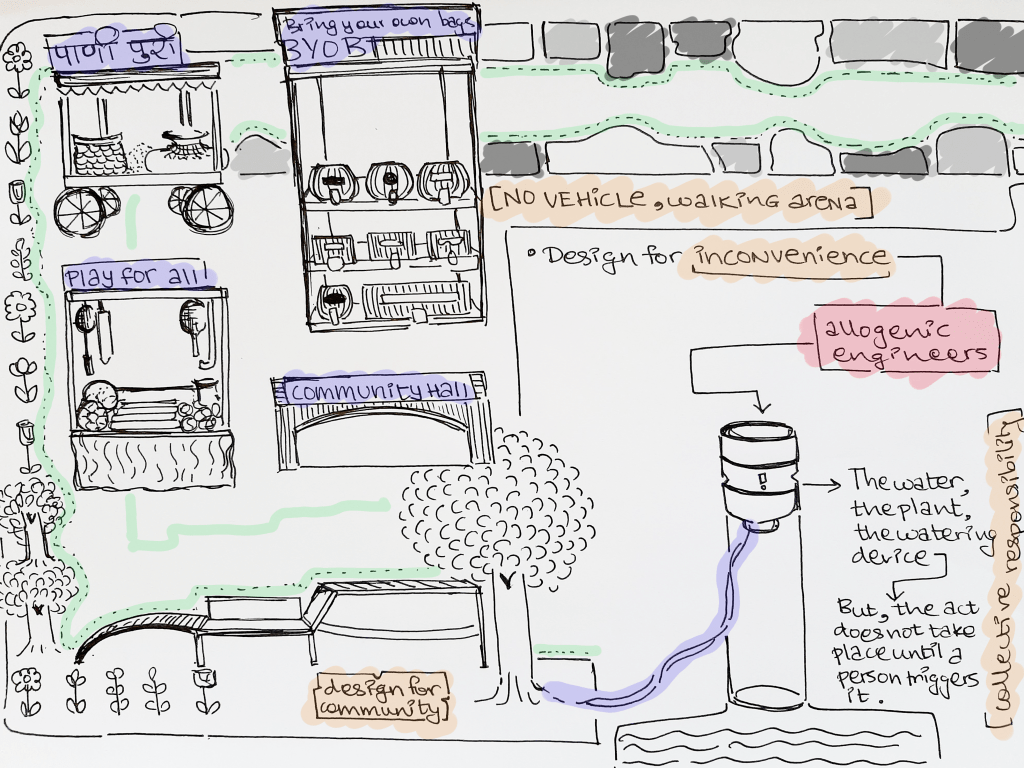 पाणी पुरी
Bring your own bags
BYOB!
[NO VEHICLE, walking arena]
• Design for inconvenience
Play for all!
allogenic
engineers
COMMUNITY HALL
The water,
the plant,
the watering
device
But, the act
does not take
place until a
person triggers
it.
design for
community
[collective responsibility]